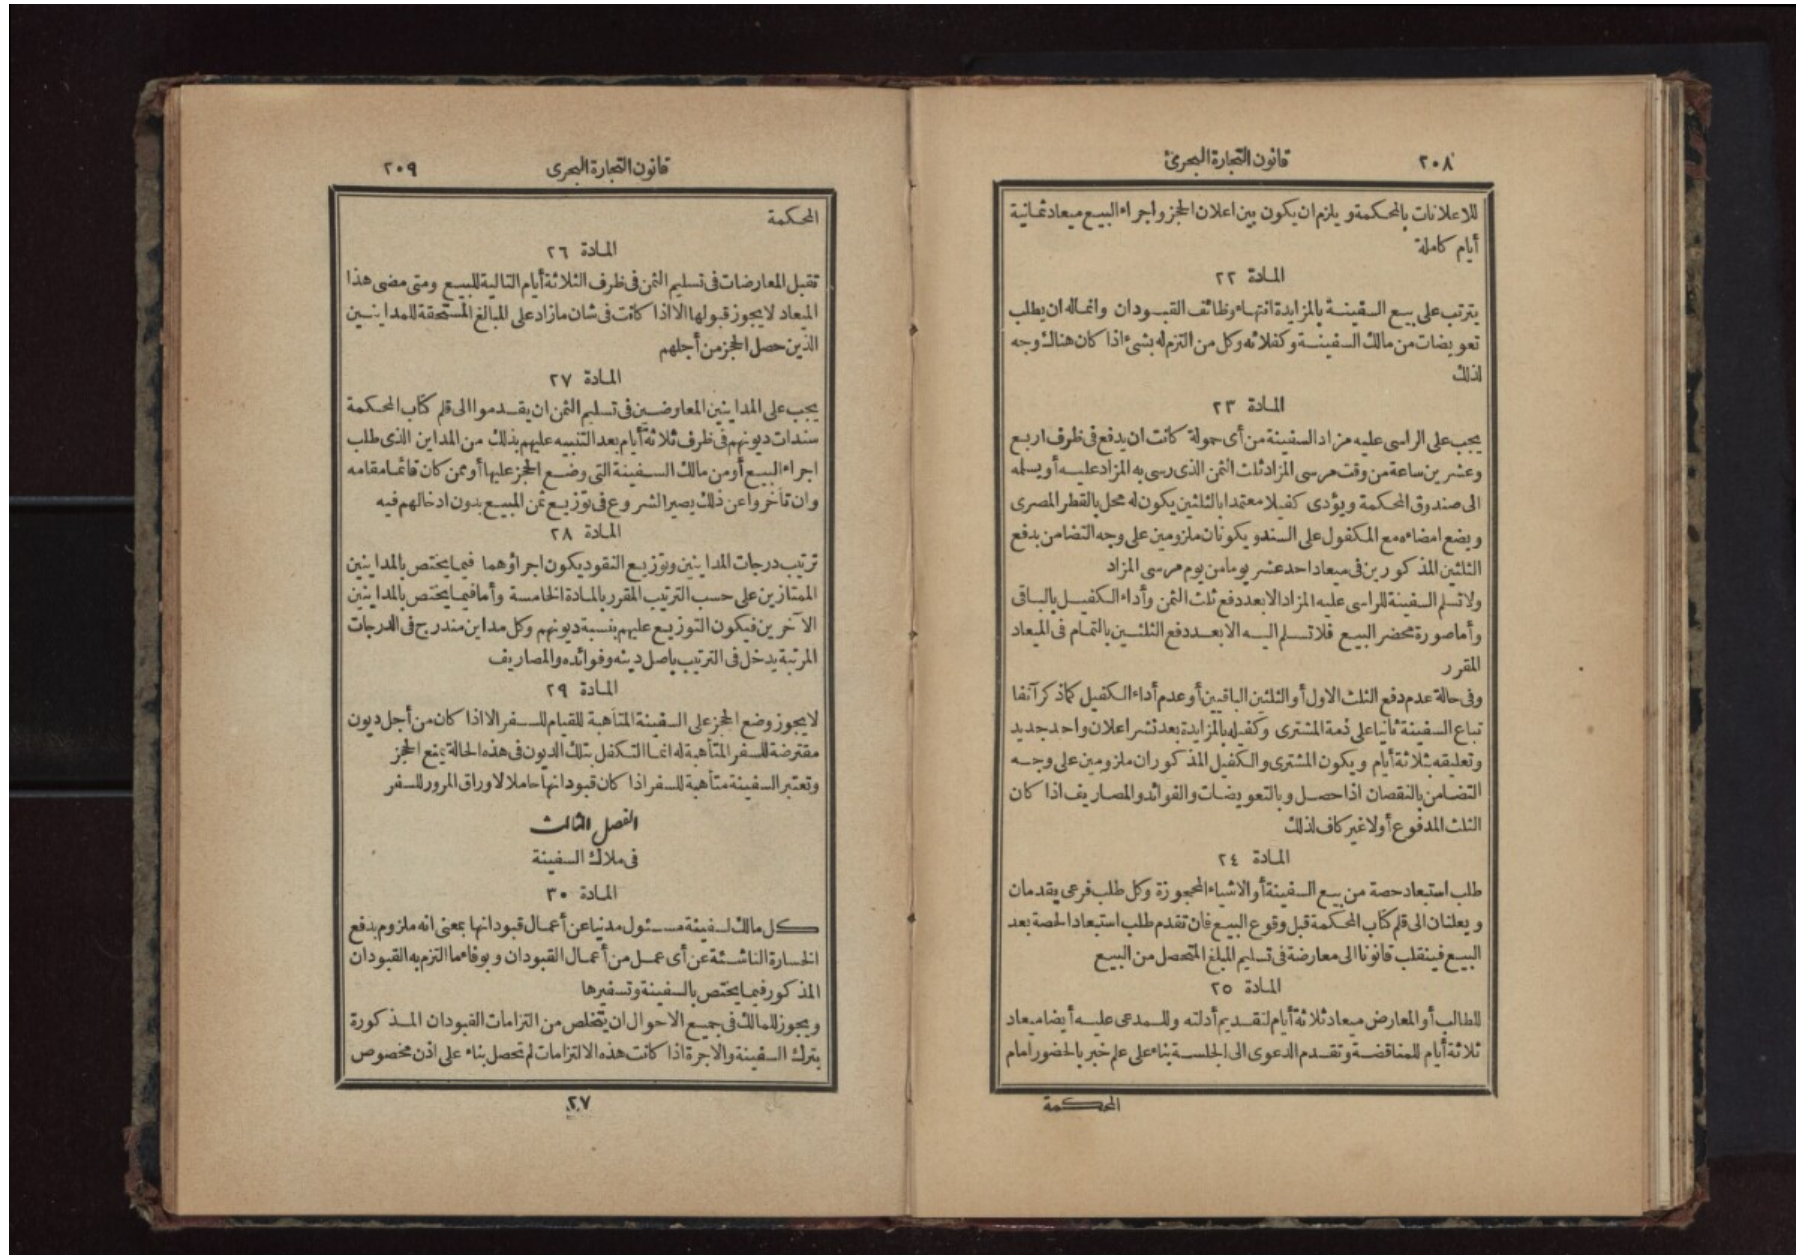 ٢٠٨
قانون التجارة البحرى
للاعلانات بالمحكمة ويلزم ان يكون بين اعلان الحجز واجراء البيع ميعاد ثمانية
أيام كاملة
المادة ٢٢
يترتب على بيع السفينة بالمزايدة انتهاء وظائف القبودان وانما له ان يطلب
تعويضات من مالك السفينة وكفلائه وكل من التزم له بشئ اذا كان هناك وجه
لذلك
المادة ٢٣
يجب على الراسى عليه مزاد السفينة من أى حمولة كانت ان يدفع فى ظرف اربع
وعشرين ساعة من وقت مرسى المزاد ثلث الثمن الذى رسى به المزاد عليه أو يسلمه
الى صندوق المحكمة ويؤدى كفيلا معتمدا بالثلثين يكون له محل بالقطر المصرى
ويضع امضاءه مع المكفول على السند ويكونان ملزومين على وجه التضامن بدفع
الثلثين المذكورين فى ميعاد احد عشر يوما من يوم مرسى المزاد
ولا تسلم السفينة للراسى عليه المزاد الا بعد دفع ثلث الثمن وأداء الكفيل بالباقى
وأما صورة محضر البيع فلا تسلم اليه الا بعد دفع الثلثين بالتمام فى الميعاد
المقرر
وفى حالة عدم دفع الثلث الاول أو الثلثين الباقيين أو عدم أداء الكفيل كما ذكر آنفا
تباع السفينة ثانيا على ذمة المشترى وكفيله بالمزايدة بعد نشر اعلان واحد جديد
وتعليقه بثلاثة أيام ويكون المشترى والكفيل المذكوران ملزومين على وجه
التضامن بالنقصان اذا حصل وبالتعويضات والفوائد والمصاريف اذا كان
الثلث المدفوع أولا غير كاف لذلك
المادة ٢٤
طلب استبعاد حصة من بيع السفينة أو الاشياء المحجوزة وكل طلب فرعى يقدمان
ويعلنان الى قلم كتاب المحكمة قبل وقوع البيع فان تقدم طلب استبعاد الحصة بعد
البيع فينقلب قانونا الى معارضة فى تسليم المبلغ المتحصل من البيع
المادة ٢٥
للطالب أو المعارض ميعاد ثلاثة أيام لتقديم أدلته وللمدعى عليه أيضا ميعاد
ثلاثة أيام للمناقضة وتقدم الدعوى الى الجلسة بناء على علم خبر بالحضور امام
المحكمة
قانون التجارة البحرى
٢٠٩
المحكمة
المادة ٢٦
تقبل المعارضات فى تسليم الثمن فى ظرف الثلاثة أيام التالية للبيع ومتى مضى هذا
الميعاد لا يجوز قبولها الا اذا كانت فى شان مازاد على المبالغ المستحقة للمداينين
الذين حصل الحجز من أجلهم
المادة ٢٧
يجب على المداينين المعارضين فى تسليم الثمن ان يقدموا الى قلم كتاب المحكمة
سندات ديونهم فى ظرف ثلاثة أيام بعد التنبيه عليهم بذلك من المداين الذى طلب
اجراء البيع أو من مالك السفينة التى وضع الحجز عليها أو ممن كان قائما مقامه
وان تأخروا عن ذلك يصير الشروع فى توزيع ثمن المبيع بدون ادخالهم فيه
المادة ٢٨
ترتيب درجات المداينين وتوزيع النقود يكون اجراؤهما فيما يختص بالمداينين
الممتازين على حسب الترتيب المقرر بالمادة الخامسة وأما فيما يختص بالمداينين
الآخرين فيكون التوزيع عليهم بنسبة ديونهم وكل مداين مندرج فى الدرجات
المرتبة يدخل فى الترتيب باصل دينه وفوائده والمصاريف
المادة ٢٩
لا يجوز وضع الحجز على السفينة المتاهبة للقيام للسفر الا اذا كان من أجل ديون
مقترضة للسفر المتأهبة له انما التكفل بتلك الديون فى هذه الحالة يمنع الحجز
وتعتبر السفينة متأهبة للسفر اذا كان قبودانها حاملا لاوراق المرور للسفر
الفصل الثالث
فى ملاك السفينة
المادة ٣٠
كل مالك لسفينة مسئول مدنيا عن أعمال قبودانها بمعنى انه ملزوم بدفع
الخسارة الناشئة عن أى عمل من أعمال القبودان وبوفاء ما التزم به القبودان
المذكور فيما يختص بالسفينة وتسفيرها
ويجوز للمالك فى جميع الاحوال ان يتخلص من التزامات القبودان المذكورة
بترك السفينة والاجرة اذا كانت هذه الالتزامات لم تحصل بناء على اذن مخصوص
٢٧